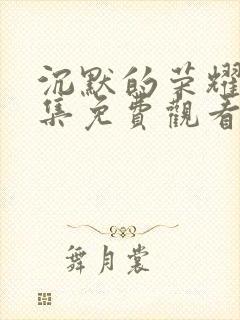 沉默的荣耀
集免費觀看
舞月裳